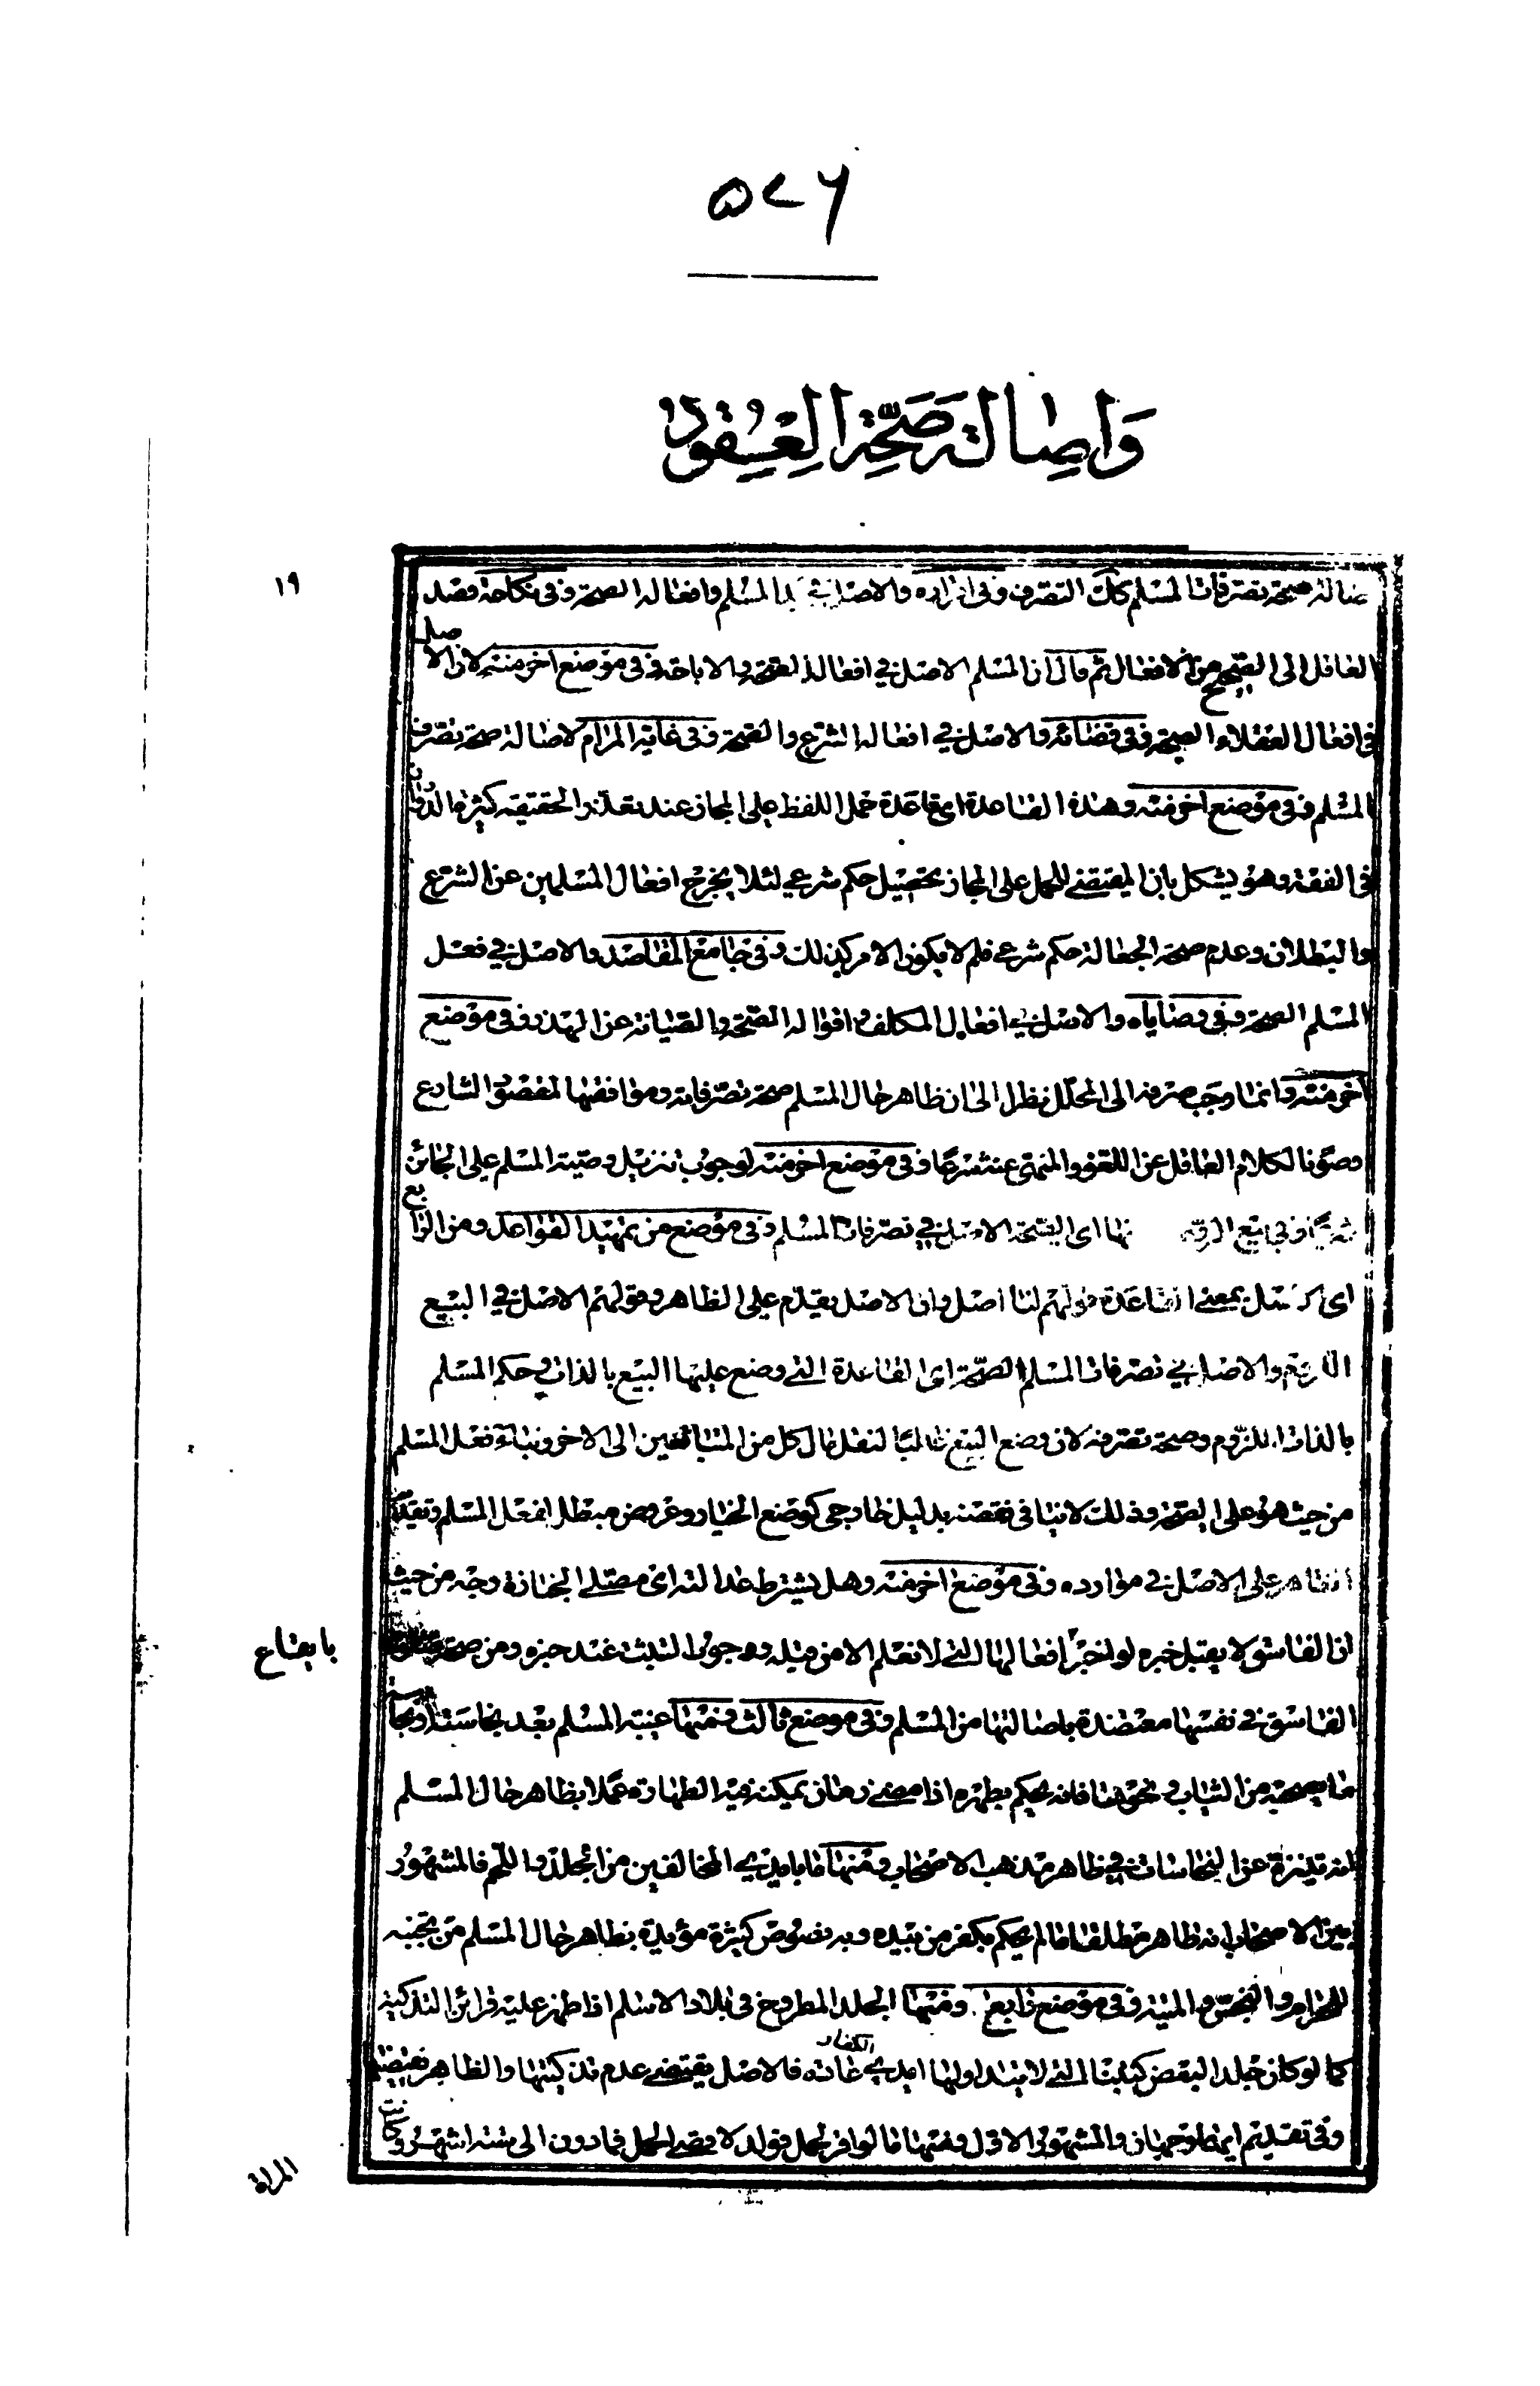 ۵۷۶
وَاصالة صَحّة العقود
١٩
صالة صحة تصرفات المسلم كك التصرف وفى والاصل فى المسلم وافعاله الصحة وفى نكاحه وقصد
العاقل الى الصحيح من الافعال ثم قال ان المسلم الاصل في افعاله الصحة والاباحة وفى موضع اخر منه لان الاصل
فى افعال العقلاء الصحة وفى قضائه والاصل في افعاله الشرع والصحة وفى غاية المرام لاصالة صحة تصرف
المسلم وفى موضع اخر منه وهذه القاعدة اى قاعدة حمل اللفظ على المجاز عند تعذر الحقيقة كثيرة الدوران
فى الفقه وهو يشكل بان المقتضي للحمل على المجاز تحصيل حكم شرعي لئلا يخرج افعال المسلمين عن الشرع
والبطلان وعدم صحة الجعالة حكم شرعي فلم لا يكون الامر كذلك وفى جامع المقاصد والاصل في فعل
المسلم الصحة وفى وصاياه والاصل في افعال المكلف واقواله الصحة والصيانة عن الهذر وفى موضع
اخر منه وانما وجب صرفه الى المحلل نظرا الى ان ظاهر حال المسلم صحة تصرفاته وموافقتها لمقصود الشارع
وصونا لكلام العاقل عن اللغو والمنهي عنه شرعا وفى موضع اخر منه لوجوب تنزيل وصية المسلم على الجائز
شرعا وفى اى الصحة الاصل في تصرفات المسلم وفى موضع من تمهيد القواعد ومن الرابع
اى الاصل بمعنى القاعدة قولهم لنا اصل وان الاصل يقدم على الظاهر وقولهم الاصل في البيع
اللزوم والاصل في تصرفات المسلم الصحة اى القاعدة التي وضع عليها البيع بالذات وحكم المسلم
بالذات اللزوم وصحة تصرفه لان وضع البيع غالبا لنقل مال كل من المتبايعين الى الاخر وبناء فعل المسلم
من حيث هو على الصحة وذلك لا ينافى نقضه بدليل خارجى كوضع الخيار وعروض مبطل لفعل المسلم وتقديم
الظاهر على الاصل في موارده وفى موضع اخر منه وهل يشترط عدالته اى مصلي الجنازة وجه من حيث
ان الفاسق لا يقبل خبره لو اخبر افعالها التي لا تعلم الا من قبله ووجوب التثبت عند خبره ومن صحة
بايقاع
الفاسق في نفسها معتضدة باصالتها من المسلم وفى موضع ثالث ومنها غيبة المسلم بعد نجاسته او نجاسة
ما يصحبه من الثياب ونحوها فانه يحكم بطهره اذا مضى زمان يمكنه فيه الطهارة عملا بظاهر حال المسلم
انه تنزه عن النجاسات في ظاهر مذهب الاصحاب ومنها ما بايدي المخالفين من الجلد واللحم فالمشهور
بين الاصحاب انه طاهر مطلقا ما لم يحكم بكفر من بيده وبه نصوص كثيرة مؤيدة بظاهر حال المسلم من تجنبه
الحرام والنجس والميتة وفى موضع رابع ومنها الجلد المطروح فى بلاد الاسلام اذا ظهر عليه قرائن التذكية
كما لو كان جلدا لبعض كتبنا التي لا يتداولها ايدي الكفار عادة فالاصل يقتضي عدم تذكيتها والظاهر يقتضيها
وفى تقديم ايهما وجهان والمشهور الاول ومنها ما لو اقر لحمل فولد لاقصى الحمل فما دون الى ستة اشهر وكانت
المراة